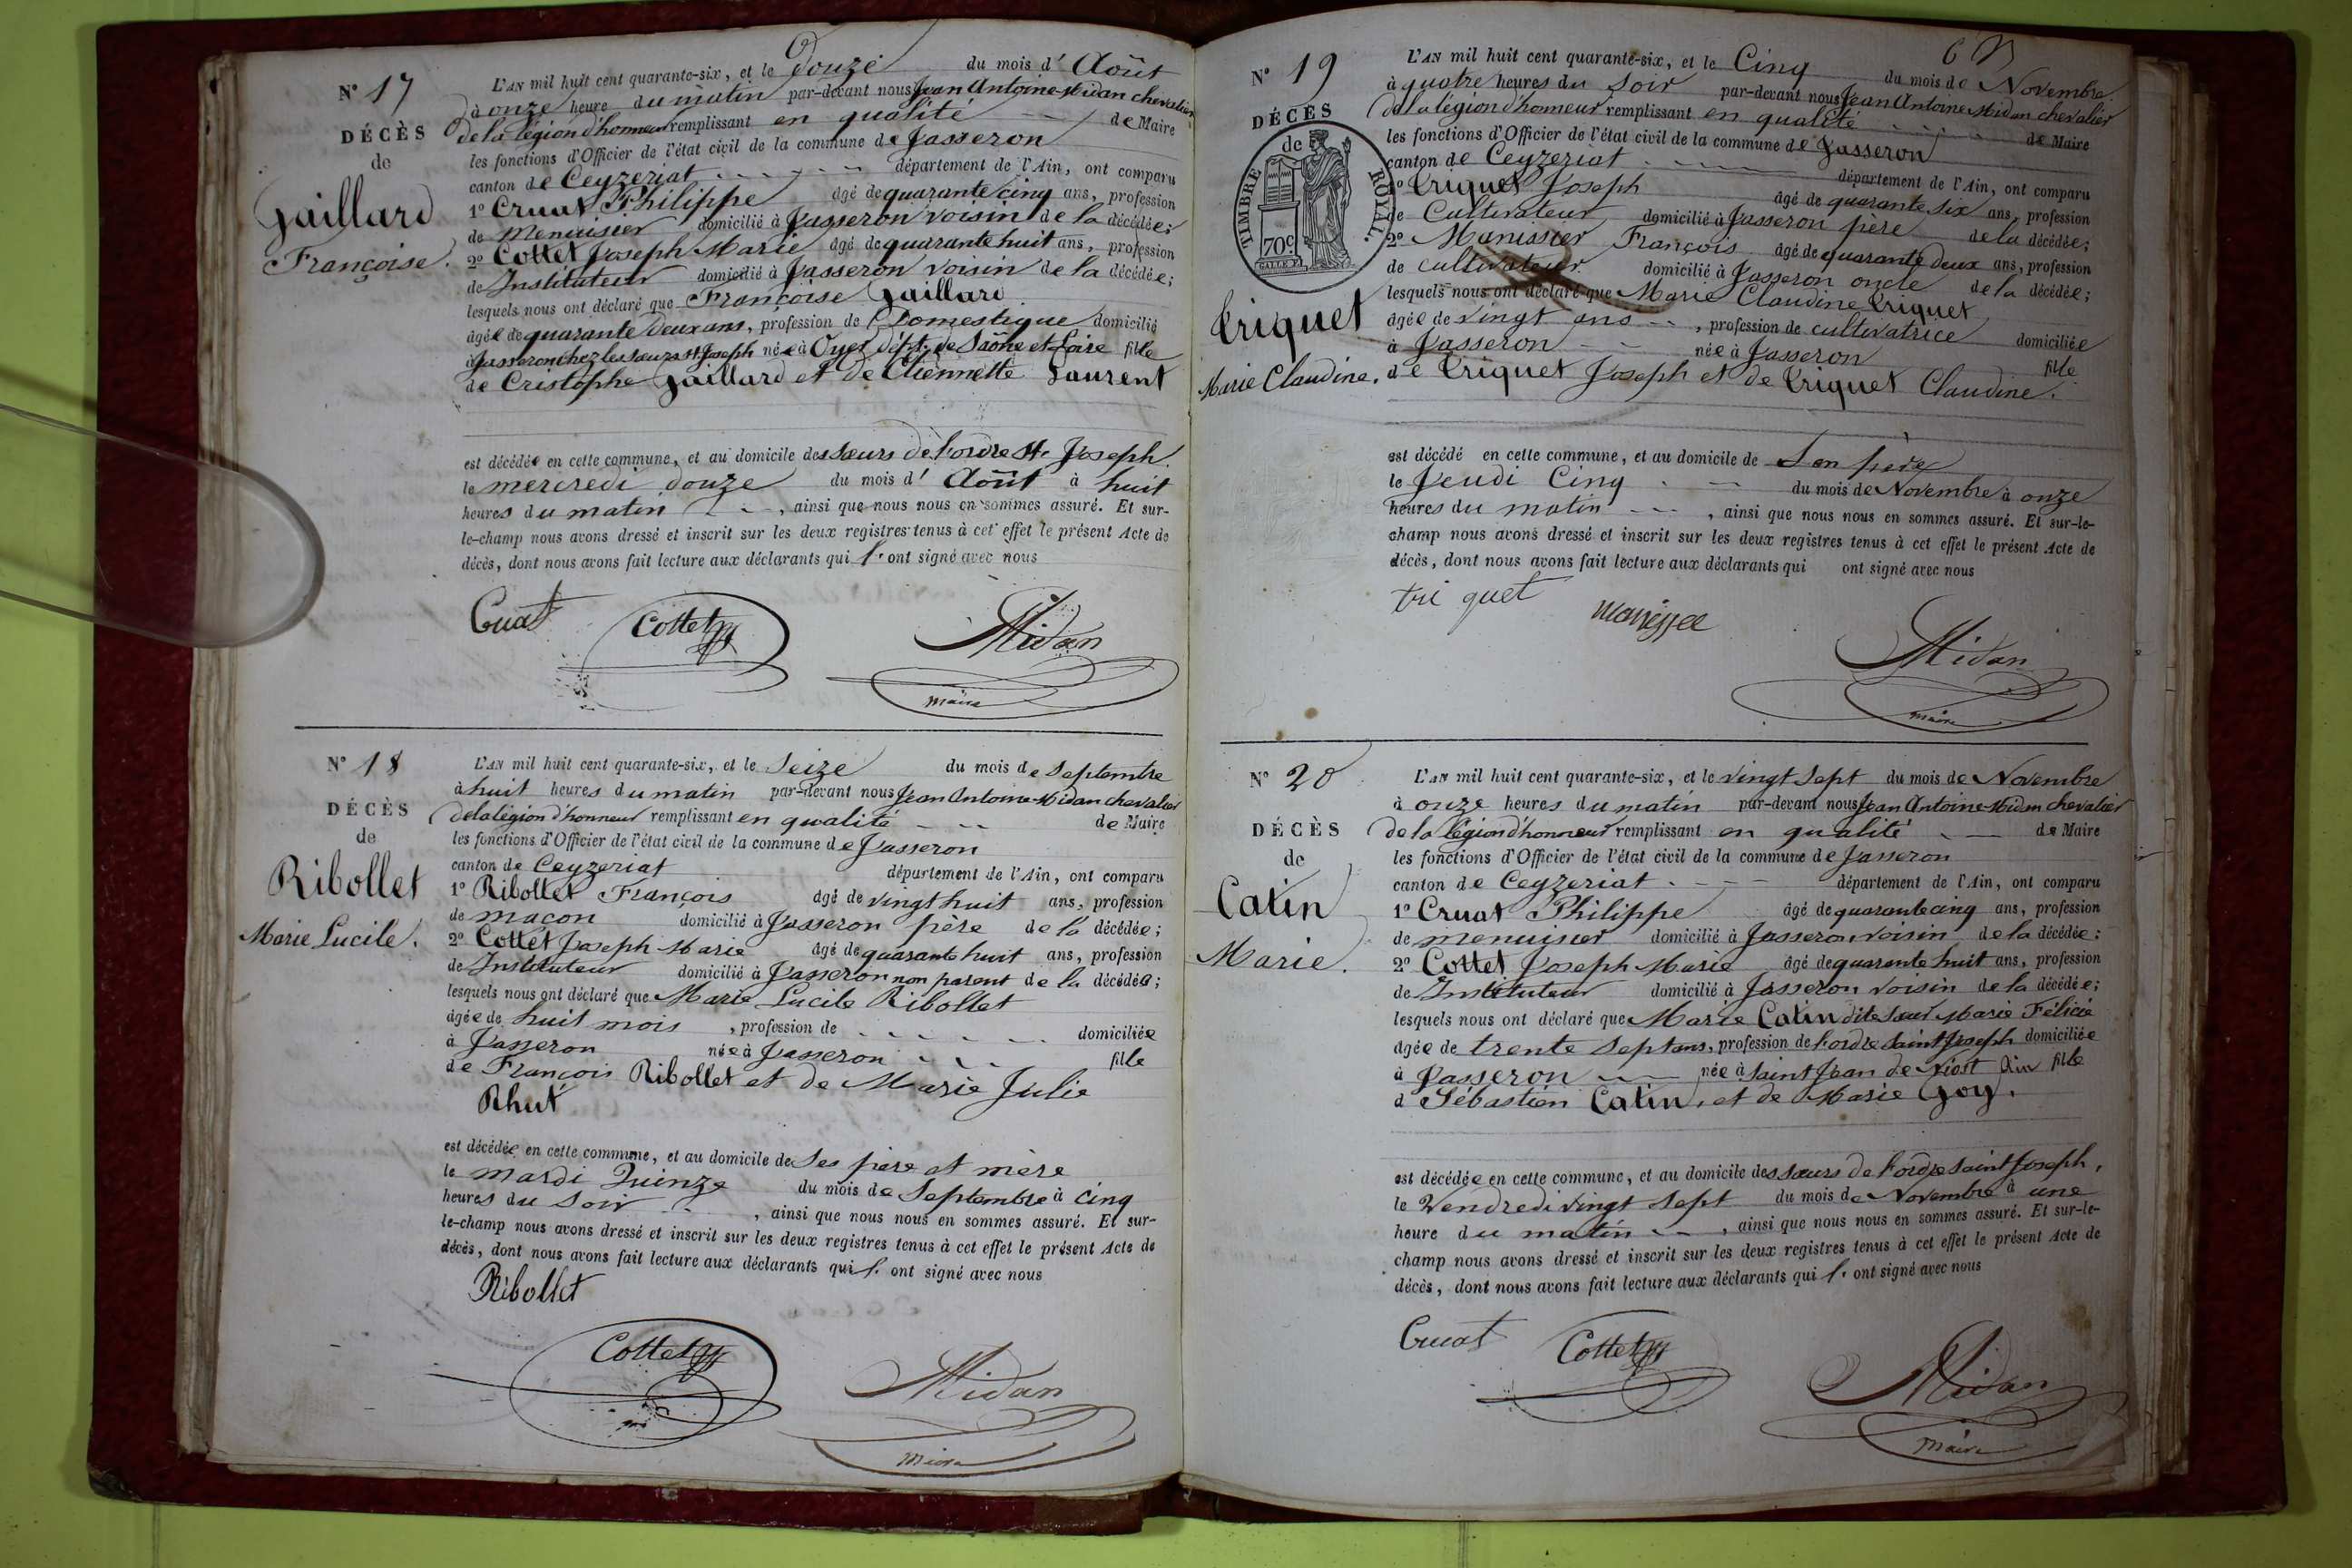 N° 17
DÉCÈS
de
Gaillard
Françoise.
L'AN mil huit cent quarante-six, et le Douze du mois d' Août
à onze heure du matin par-devant nous Jean Antoine Midan chevalier
de la légion d'honneur remplissant en qualité de Maire
les fonctions d'Officier de l'état civil de la commune de Jasseron
canton de Ceyzeriat département de l'Ain, ont comparu
1° Cruat Philippe âgé de quarante cinq ans, profession
de menuisier domicilié à Jasseron voisin de la décédée;
2° Cottet Joseph Marie âgé de quarante huit ans, profession
de Instituteur domicilié à Jasseron voisin de la décédée;
lesquels nous ont déclaré que Françoise Gaillard
âgée de quarante deux ans, profession de Domestique domicilié
à Jasseron chez les sœurs St. Joseph née à Oyer dépt. de Saône et Loire fille
de Cristophe Gaillard et de Etiennette Laurent
est décédée en cette commune, et au domicile des sœurs de l'ordre St. Joseph.
le mercredi douze du mois d' Août à huit
heures du matin, ainsi que nous nous en sommes assuré. Et sur-
le-champ nous avons dressé et inscrit sur les deux registres tenus à cet effet le présent Acte de
décès, dont nous avons fait lecture aux déclarants qui l' ont signé avec nous
Cruat Cottet Midan
maire
N° 18
DÉCÈS
de
Ribollet
Marie Lucile.
L'AN mil huit cent quarante-six, et le Seize du mois de Septembre
à huit heures du matin par-devant nous Jean Antoine Midan chevalier
de la légion d'honneur remplissant en qualité de Maire
les fonctions d'Officier de l'état civil de la commune de Jasseron
canton de Ceyzeriat département de l'Ain, ont comparu
1° Ribollet François âgé de vingt huit ans, profession
de maçon domicilié à Jasseron père de la décédée;
2° Cottet Joseph Marie âgé de quarante huit ans, profession
de Instituteur domicilié à Jasseron non parent de la décédée;
lesquels nous ont déclaré que Marie Lucile Ribollet
âgée de huit mois, profession de domiciliée
à Jasseron née à Jasseron fille
de François Ribollet et de Marie Julie
Rhut
est décédée en cette commune, et au domicile de Ses père et mère
le mardi Quinze du mois de Septembre à cinq
heures du soir, ainsi que nous nous en sommes assuré. Et sur-
le-champ nous avons dressé et inscrit sur les deux registres tenus à cet effet le présent Acte de
décès, dont nous avons fait lecture aux déclarants qui l' ont signé avec nous
Ribollet
Cottet Midan
maire
N° 19
DÉCÈS
de
TIMBRE ROYAL.
70c
Triquet
Marie Claudine.
L'AN mil huit cent quarante-six, et le Cinq du mois de Novembre
à quatre heures du soir par-devant nous Jean Antoine Midan chevalier
de la légion d'honneur remplissant en qualité de Maire
les fonctions d'Officier de l'état civil de la commune de Jasseron
canton de Ceyzeriat département de l'Ain, ont comparu
1° Triquet Joseph âgé de quarante six ans, profession
de Cultivateur domicilié à Jasseron père de la décédée;
2° Manissier François âgé de quarante deux ans, profession
de cultivateur domicilié à Jasseron oncle de la décédée;
lesquels nous ont déclaré que Marie Claudine Triquet
âgée de vingt ans, profession de cultivatrice domiciliée
à Jasseron née à Jasseron fille
de Triquet Joseph et de Triquet Claudine.
est décédé en cette commune, et au domicile de Son père
le Jeudi Cinq du mois de Novembre à onze
heures du matin, ainsi que nous nous en sommes assuré. Et sur-le-
champ nous avons dressé et inscrit sur les deux registres tenus à cet effet le présent Acte de
décès, dont nous avons fait lecture aux déclarants qui ont signé avec nous
tri quet Midan
maire
N° 20
DÉCÈS
de
Catin
Marie.
L'AN mil huit cent quarante-six, et le vingt sept du mois de Novembre
à onze heures du matin par-devant nous Jean Antoine Midan chevalier
de la légion d'honneur remplissant en qualité de Maire
les fonctions d'Officier de l'état civil de la commune de Jasseron
canton de Ceyzeriat département de l'Ain, ont comparu
1° Cruat Philippe âgé de quarante cinq ans, profession
de menuisier domicilié à Jasseron voisin de la décédée;
2° Cottet Joseph Marie âgé de quarante huit ans, profession
de Instituteur domicilié à Jasseron voisin de la décédée;
lesquels nous ont déclaré que Marie Catin dite Sœur Marie Félicie
âgée de trente sept ans, profession de l'ordre Saint Joseph domiciliée
à Jasseron née à Saint Jean de Niost Ain fille
d Sébastien Catin, et de Marie Goy.
est décédée en cette commune, et au domicile des sœurs de l'ordre Saint Joseph,
le Vendredi vingt Sept du mois de Novembre à une
heure du matin, ainsi que nous nous en sommes assuré. Et sur-le-
champ nous avons dressé et inscrit sur les deux registres tenus à cet effet le présent Acte de
décès, dont nous avons fait lecture aux déclarants qui l' ont signé avec nous
Cruat Cottet Midan
maire